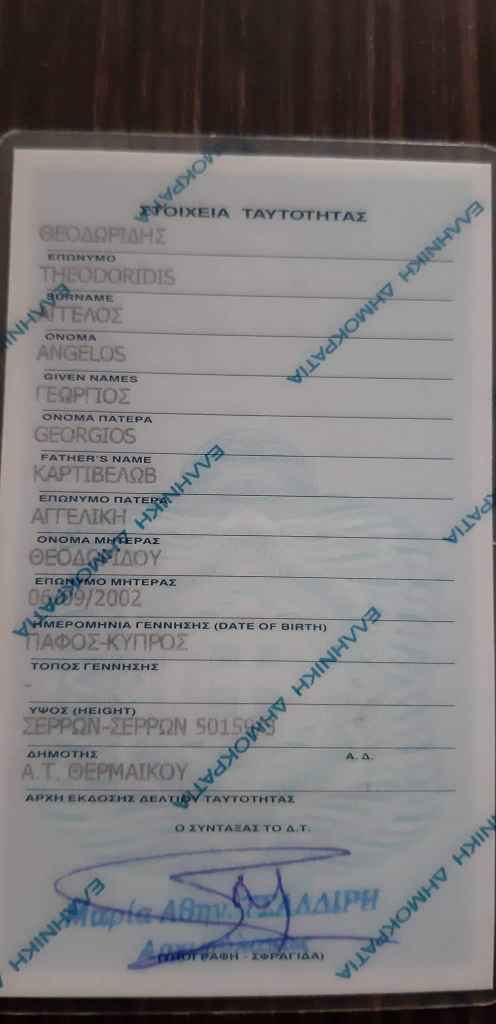 ΣΤΟΙΧΕΙΑ ΤΑΥΤΟΤΗΤΑΣ
ΘΕΟΔΩΡΙΔΗΣ
ΕΠΩΝΥΜΟ
THEODORIDIS
SURNAME
ΑΓΓΕΛΟΣ
ΟΝΟΜΑ
ANGELOS
GIVEN NAMES
ΓΕΩΡΓΙΟΣ
ΟΝΟΜΑ ΠΑΤΕΡΑ
GEORGIOS
FATHER'S NAME
ΚΑΡΤΙΒΕΛΩΒ
ΕΠΩΝΥΜΟ ΠΑΤΕΡΑ
ΑΓΓΕΛΙΚΗ
ΟΝΟΜΑ ΜΗΤΕΡΑΣ
ΘΕΟΔΩΡΙΔΟΥ
ΕΠΩΝΥΜΟ ΜΗΤΕΡΑΣ
06/09/2002
ΗΜΕΡΟΜΗΝΙΑ ΓΕΝΝΗΣΗΣ (DATE OF BIRTH)
ΠΑΦΟΣ-ΚΥΠΡΟΣ
ΤΟΠΟΣ ΓΕΝΝΗΣΗΣ
-
ΥΨΟΣ (HEIGHT)
ΣΕΡΡΩΝ-ΣΕΡΡΩΝ
ΔΗΜΟΤΗΣ Α.Δ.
Α.Τ. ΘΕΡΜΑΙΚΟΥ
ΑΡΧΗ ΕΚΔΟΣΗΣ ΔΕΛΤΙΟΥ ΤΑΥΤΟΤΗΤΑΣ
Ο ΣΥΝΤΑΞΑΣ ΤΟ Δ.Τ.
Μαρία Αθην.
(ΥΠΟΓΡΑΦΗ - ΣΦΡΑΓΙΔΑ)
ΕΛΛΗΝΙΚΗ ΔΗΜΟΚΡΑΤΙΑ
ΕΛΛΗΝΙΚΗ ΔΗΜΟΚΡΑΤΙΑ
ΕΛΛΗΝΙΚΗ ΔΗΜΟΚΡΑΤΙΑ
ΕΛΛΗΝΙΚΗ ΔΗΜΟΚΡΑΤΙΑ